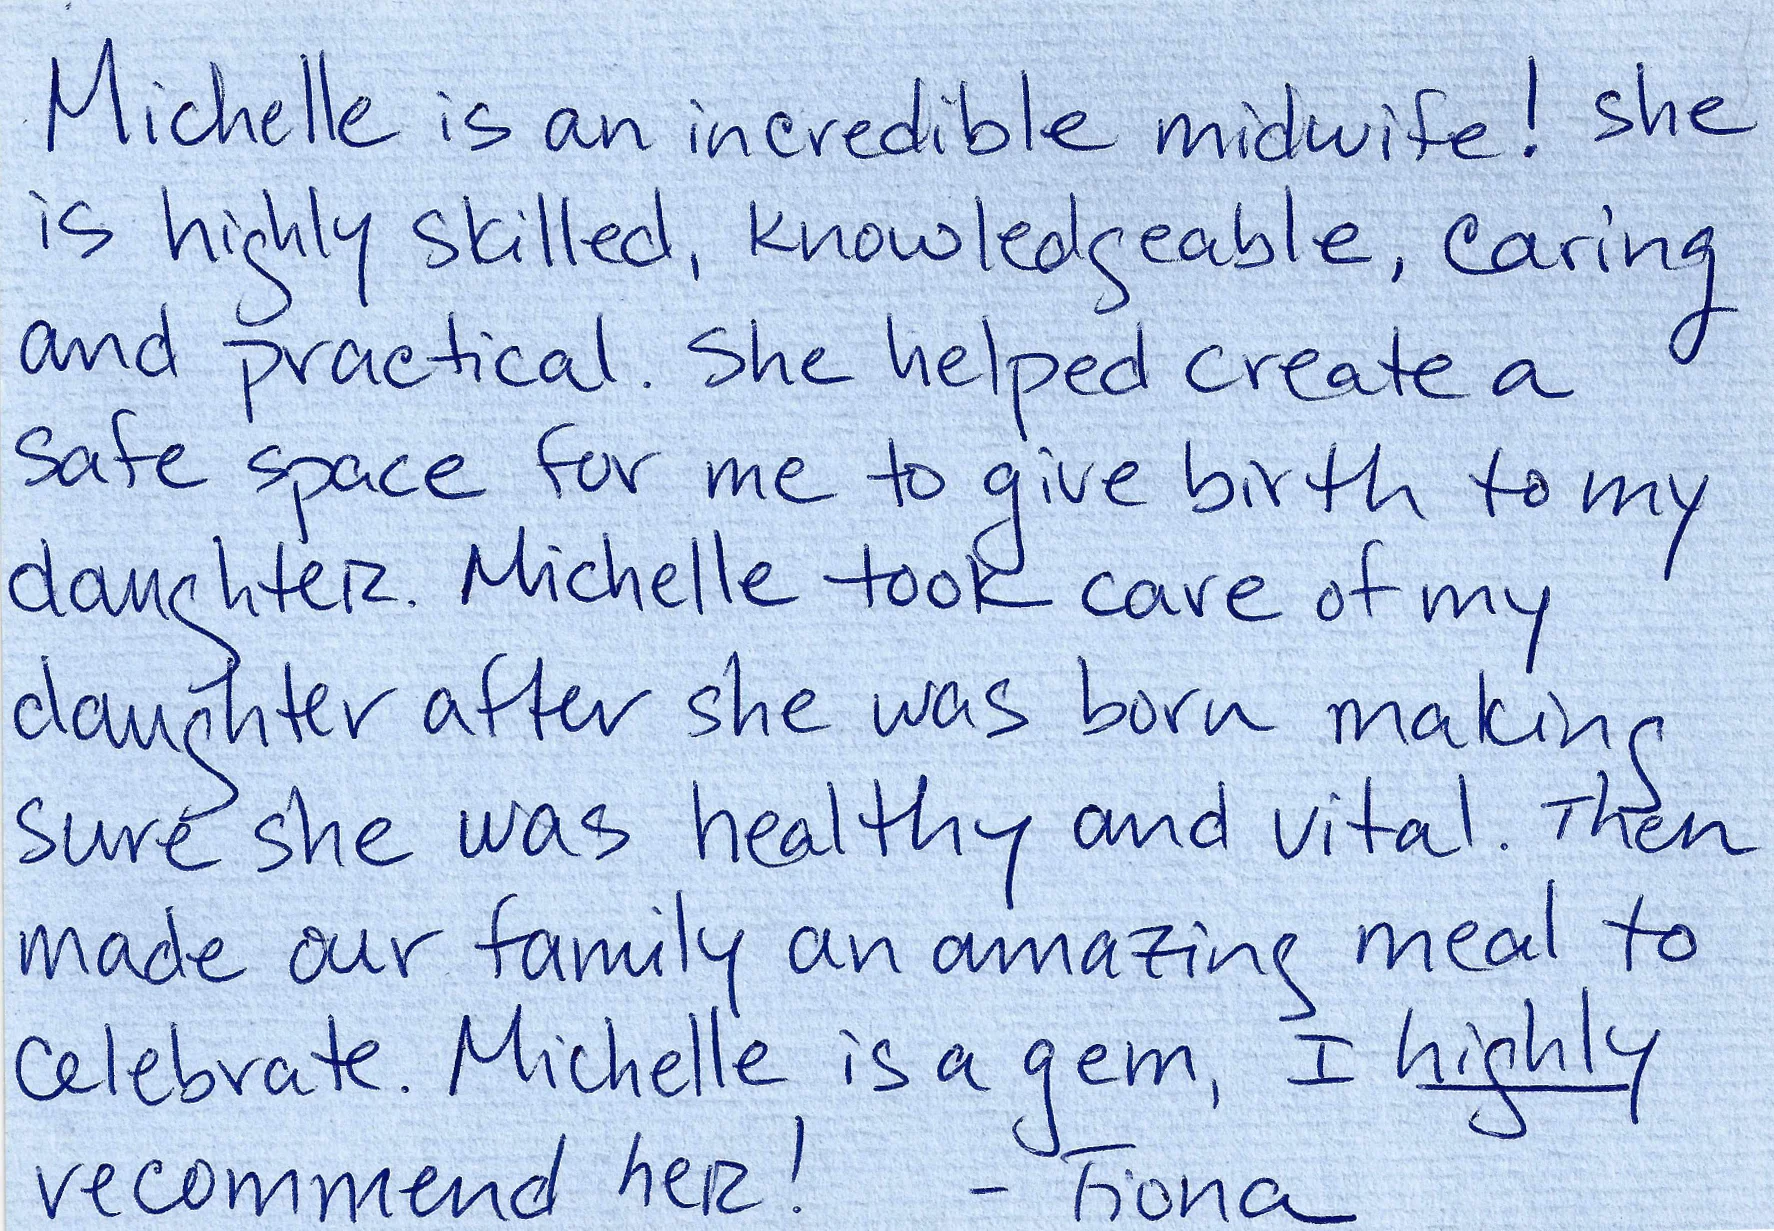 Michelle is an incredible midwife! She
is highly skilled, knowledgeable, caring
and practical. She helped create a
safe space for me to give birth to my
daughter. Michelle took care of my
daughter after she was born making
sure she was healthy and vital. Then
made our family an amazing meal to
celebrate. Michelle is a gem, I highly
recommend her! - Fiona